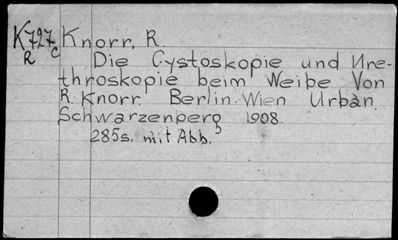 K727c Knorr, R.
R Die Cystoskopie und Ure-
throskopie beim Weibe Von
R. Knorr. Berlin-Wien Urban.
Schwarzenberg 1908.
285s. mit Abb.